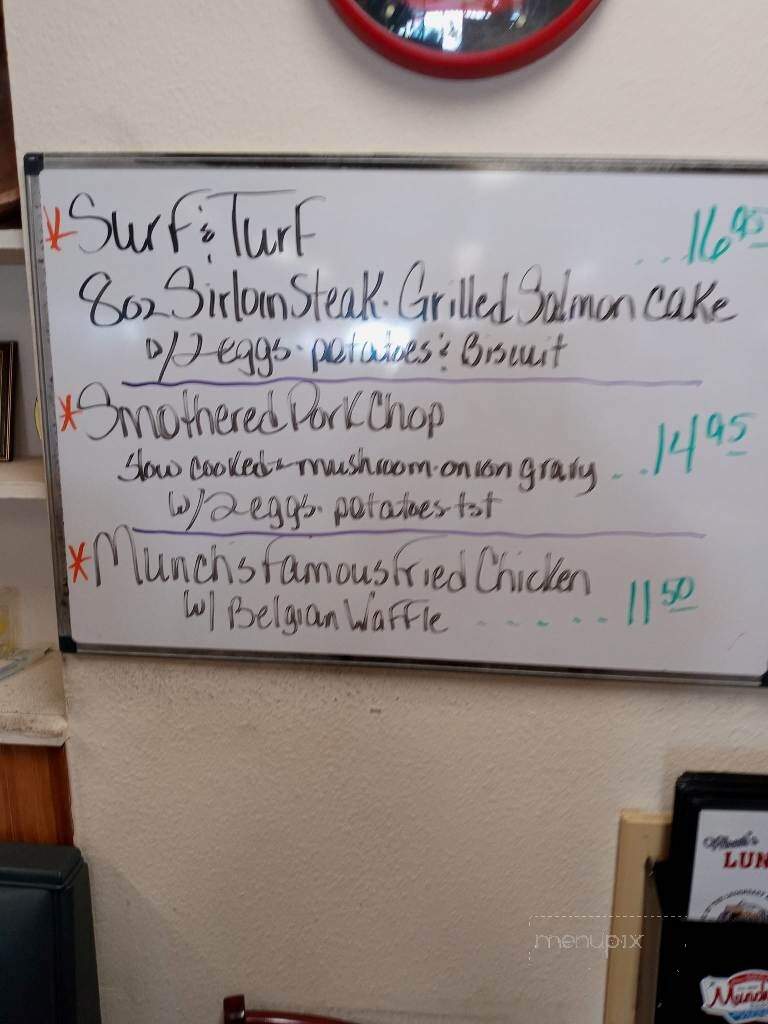 *Surf & Turf ..16 95
8oz Sirloin Steak. Grilled Salmon cake
w/2 eggs. potatoes & Biscuit
*Smothered Pork Chop
Slow cooked mushroom.onion gravy ...14 95
w/2 eggs. potatoes tst
*Munchs Famous Fried Chicken
w/ Belgian Waffle ...... 11 50
LUN
menupix
Munch